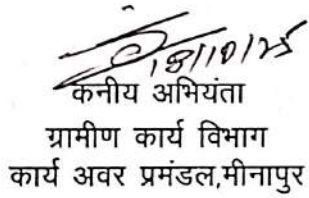 18/10/25
कनीय अभियंता
ग्रामीण कार्य विभाग
कार्य अवर प्रमंडल,मीनापुर